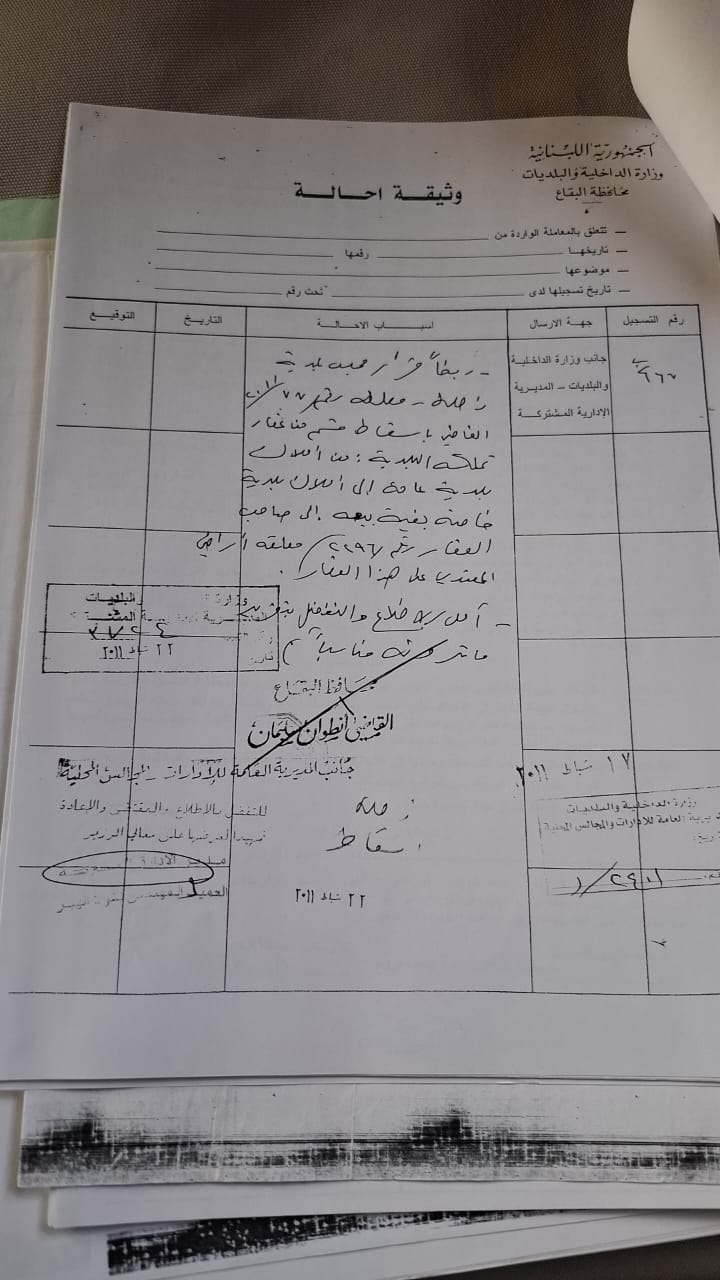 الجمهورية اللبنانية
وزارة الداخلية والبلديات
محافظة البقاع
وثيقة احالة
— تتعلق بالمعاملة الواردة من
— تاريخها رقمها
— موضوعها
— تاريخ تسجيلها لدى تحت رقم
رقم التسجيل جهة الارسال اسباب الاحالة التاريخ التوقيع
جانب وزارة الداخلية
والبلديات – المديرية
الإدارية المشتركة
٩٦٧/ب
- ربطاً قرار مجلس بلدية
زحلة - معلقة رقم ٧٧/٢٠١١
القاضي بإسقاط قسم من عقار
تملكه البلدية: من أملاك
بلدية عامة إلى أملاك بلدية
خاصة بغية بيعه إلى صاحب
العقار رقم ٢٢٩٦/ معلقة أراضي
المعتدي على هذا العقار.
- آمل الاطلاع والتفضل بتقرير
ما ترونه مناسباً
وزارة والبلديات
المشتركة
٢٢ شباط ٢٠١١
محافظ البقاع
القاضي أنطوان سليمان
١٧ شباط ٢٠١١
جانب المديرية العامة للإدارات والمجالس المحلية
للتفضل بالاطلاع والمقتضى والإعادة
تمهيدا لعرضها على معالي الوزير
زحلة
اسقاط
وزارة الداخلية والبلديات
المديرية العامة للادارات والمجالس المحلية
مدير الادارة المشتركة
العميد المهندس
٢٢ شباط ٢٠١١